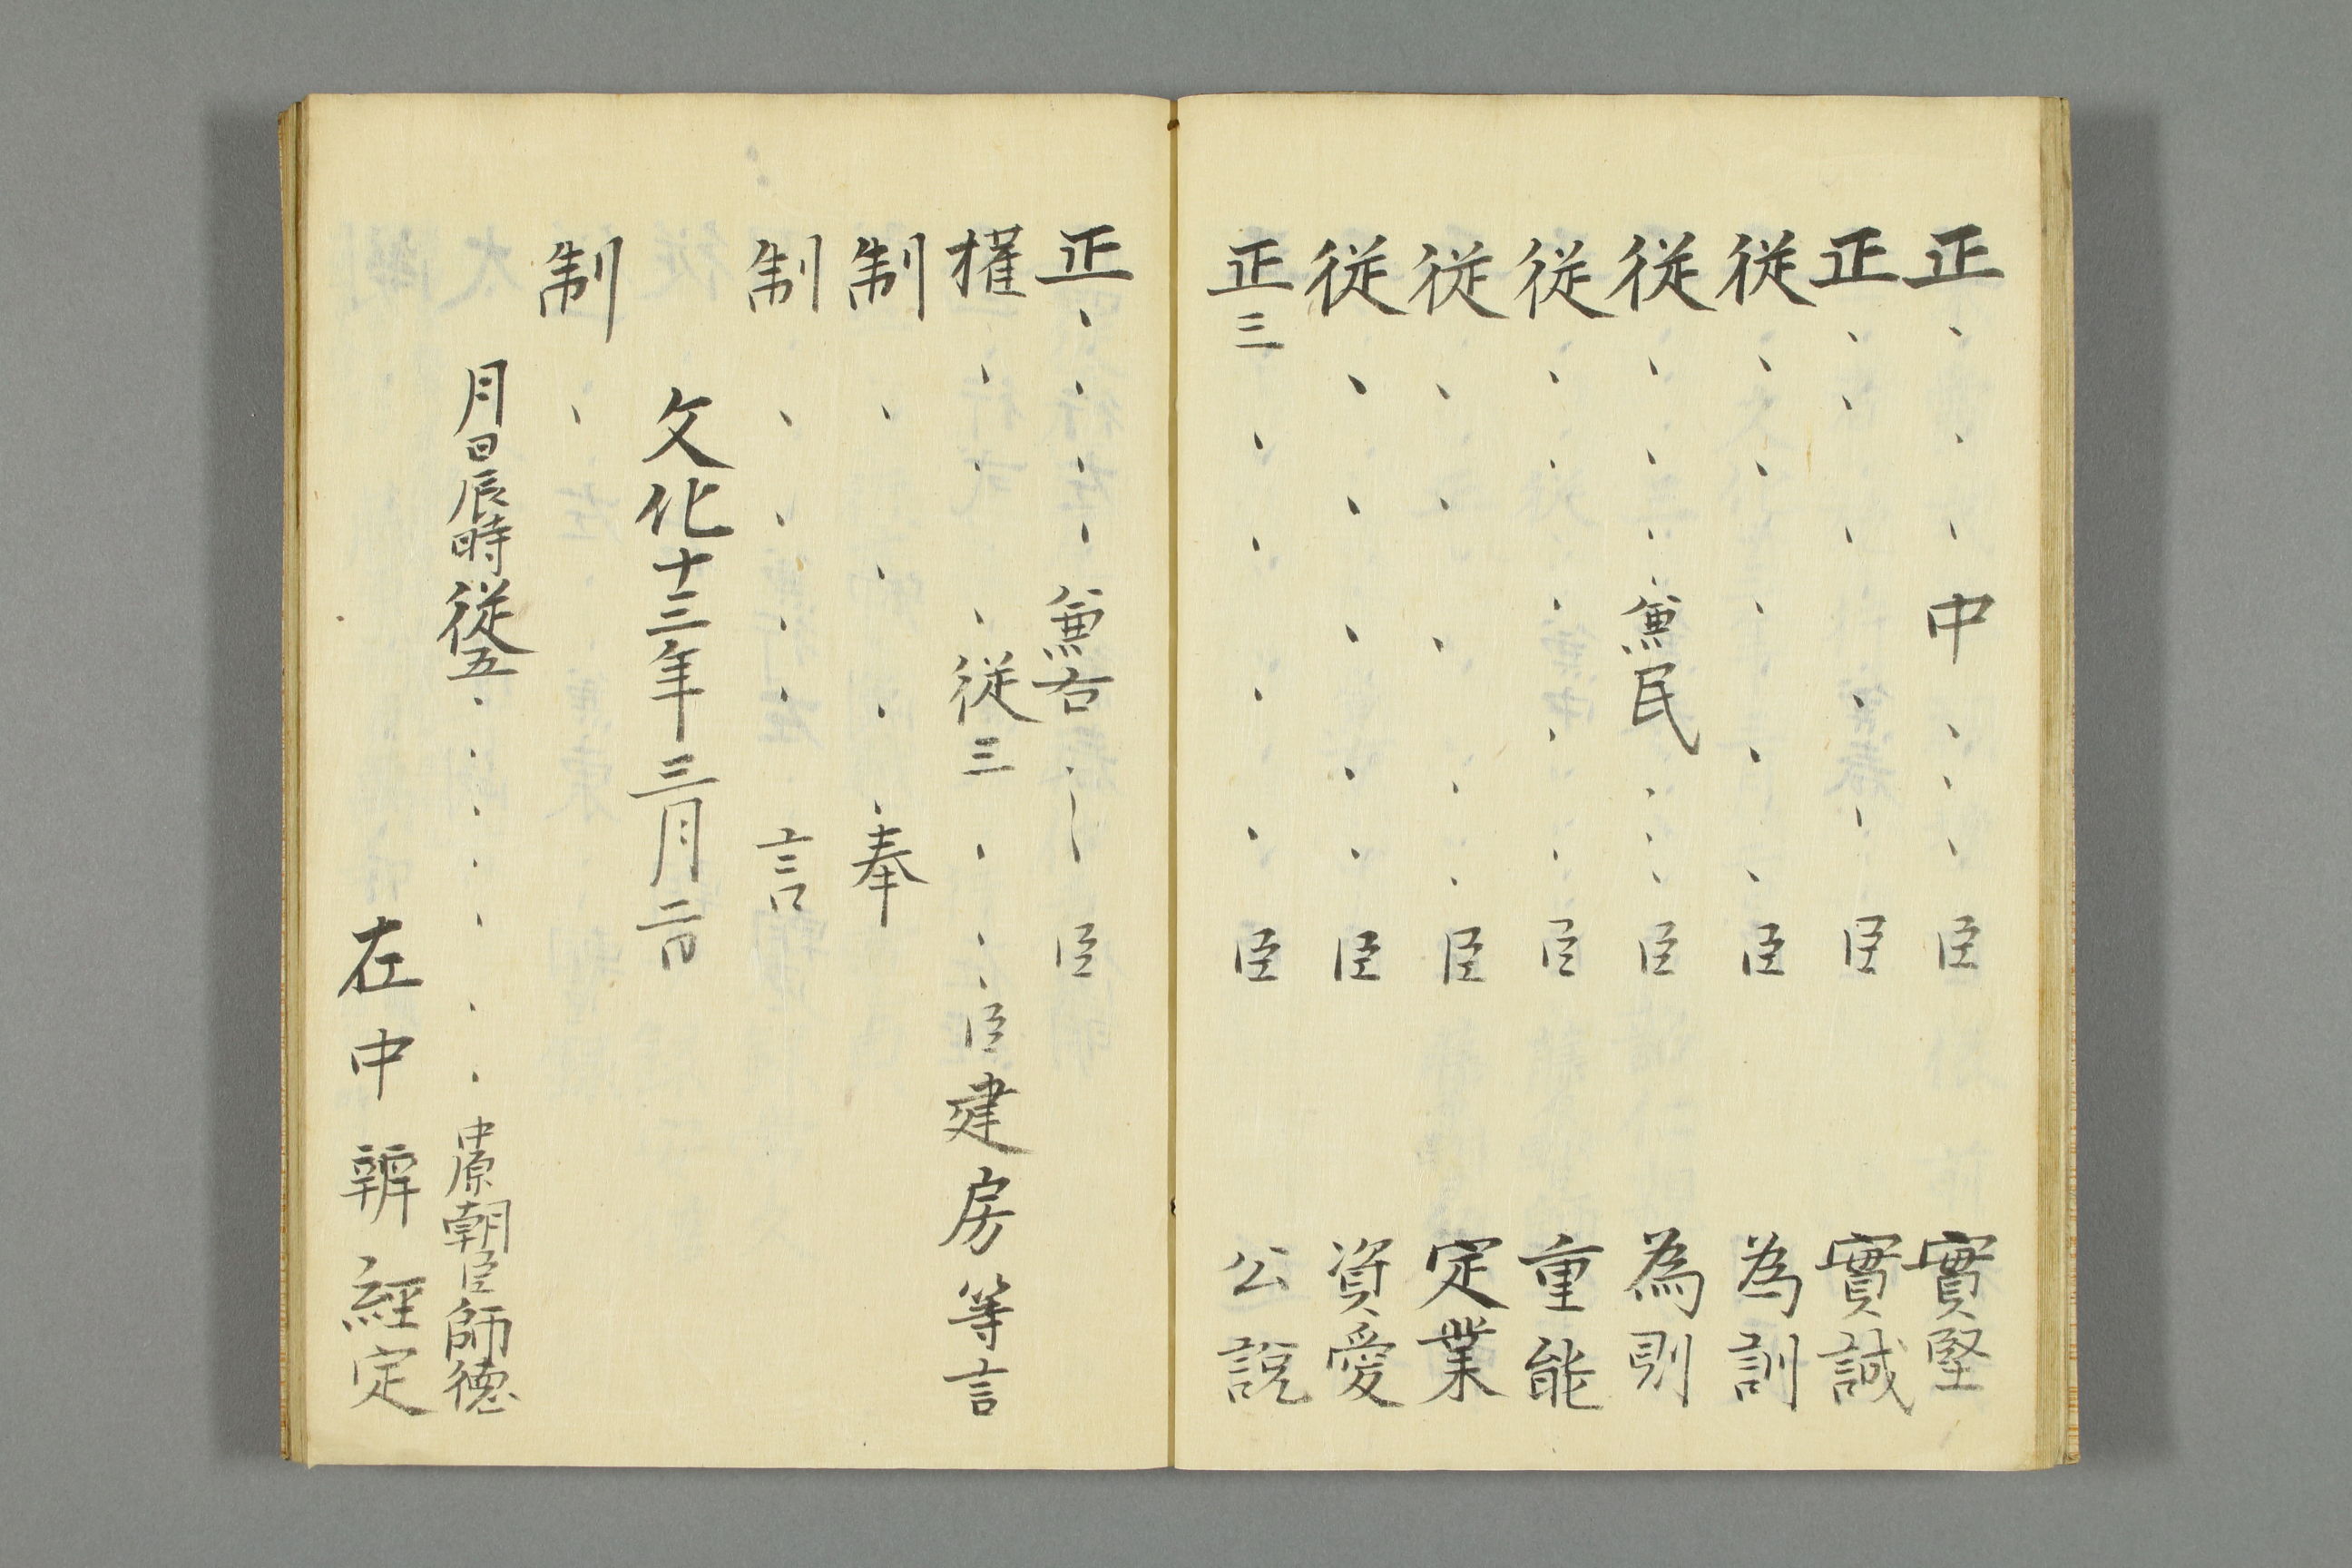 正、、、中、、、臣 實堅
正、、、、、臣 實誠
従、、、、、臣 為訓
従、、、、兼民、、、臣 為則
従、、、、、、臣 重能
従、、、、、臣 定業
従、、、、、臣 資愛
正三、、、、、臣 公説
正、、、、兼右、、臣
権、、、従三、、、臣建房等言
制、、、、奉
制、、、、言
文化十三年三月二日
制、
月日辰時従五、、、、、、、中原朝臣師徳
左中辨經定